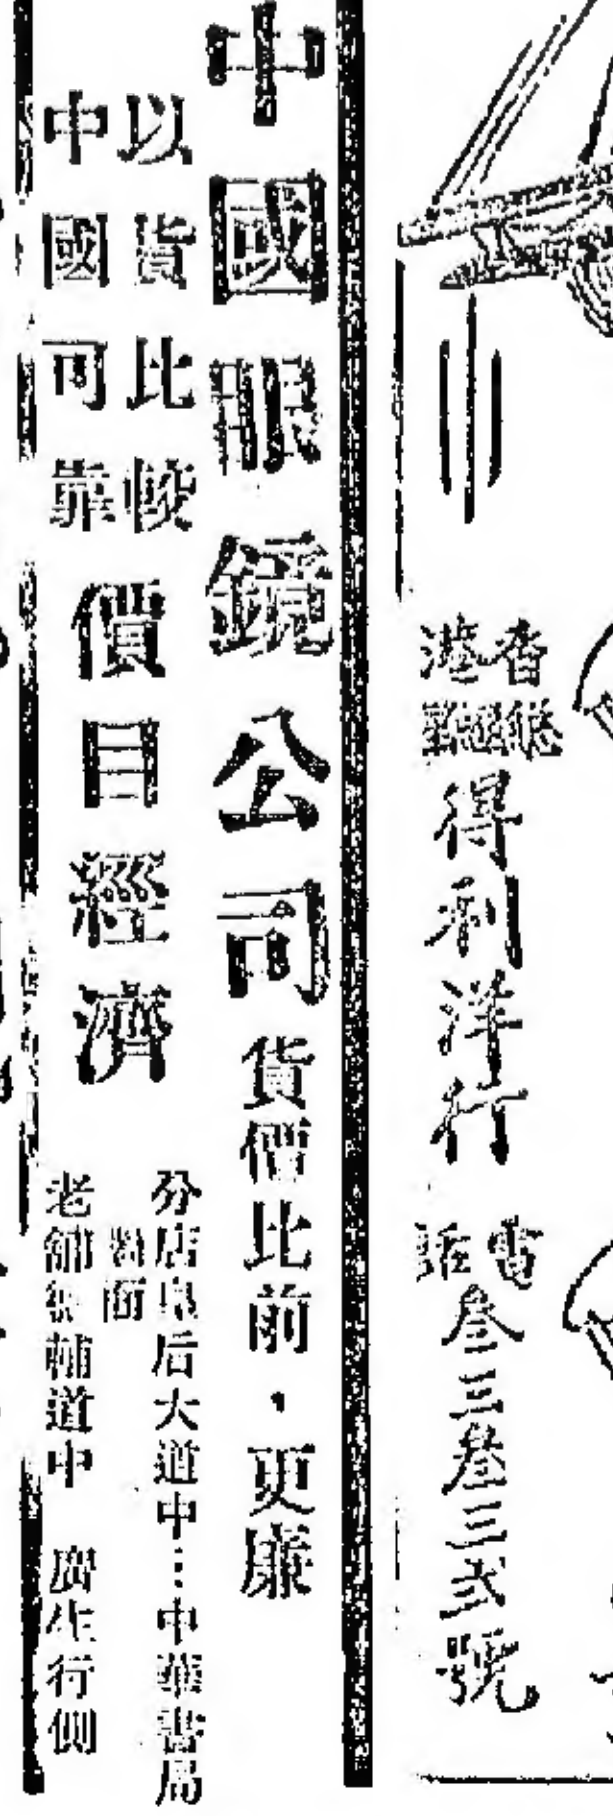 香港
得利洋行
電話
叁三叁三弍號
中國眼鏡公司
貨價比前・更廉
以貨比較
中國可靠
價目經濟
分店皇后大道中…中華書局
對面
老舖德輔道中 廣生行側